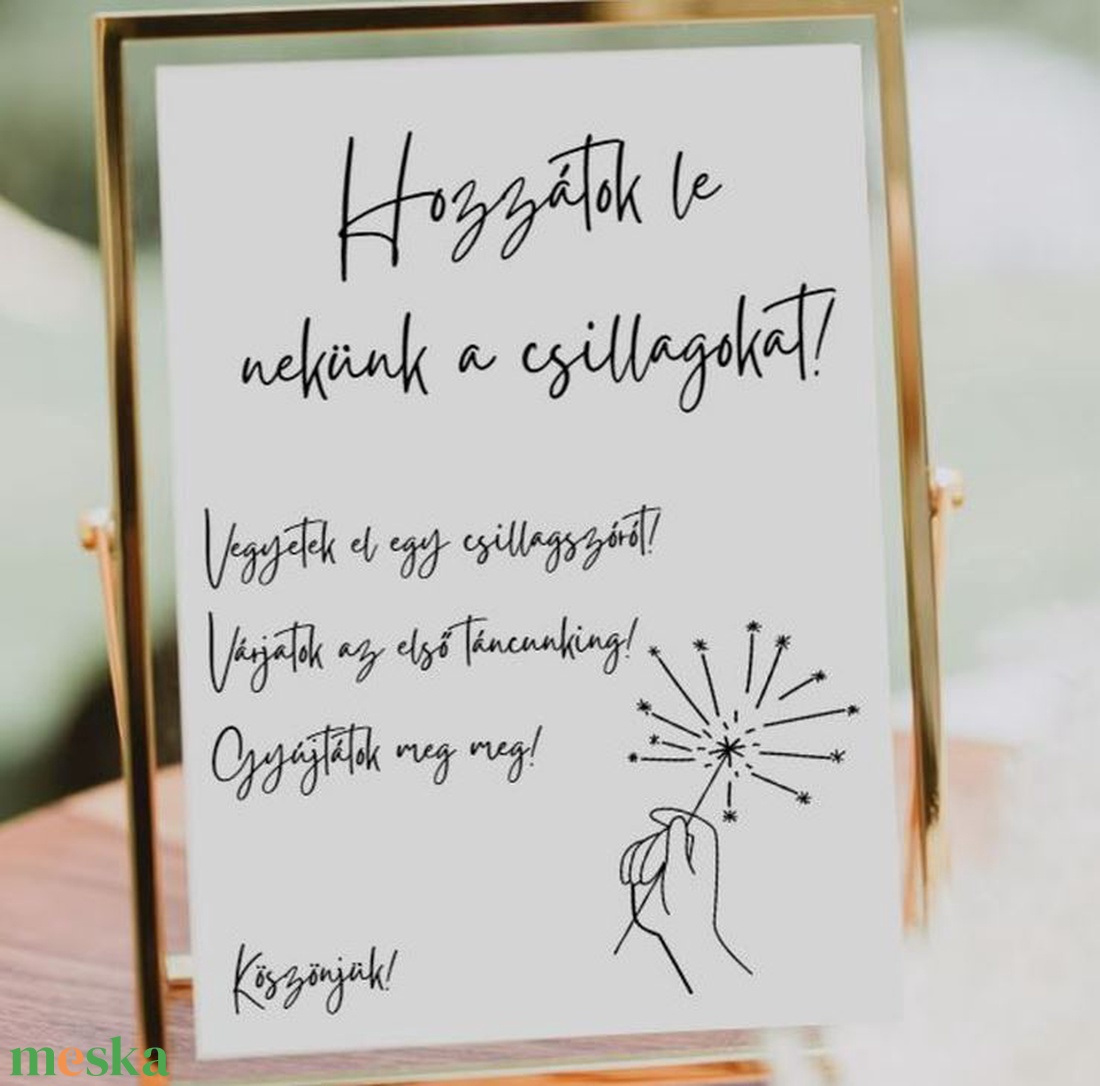 Hozzátok le
nekünk a csillagokat!
Vegyetek el egy csillagszórót!
Várjatok az első táncunking!
Gyújtátok meg meg!
Köszönjük!
meska